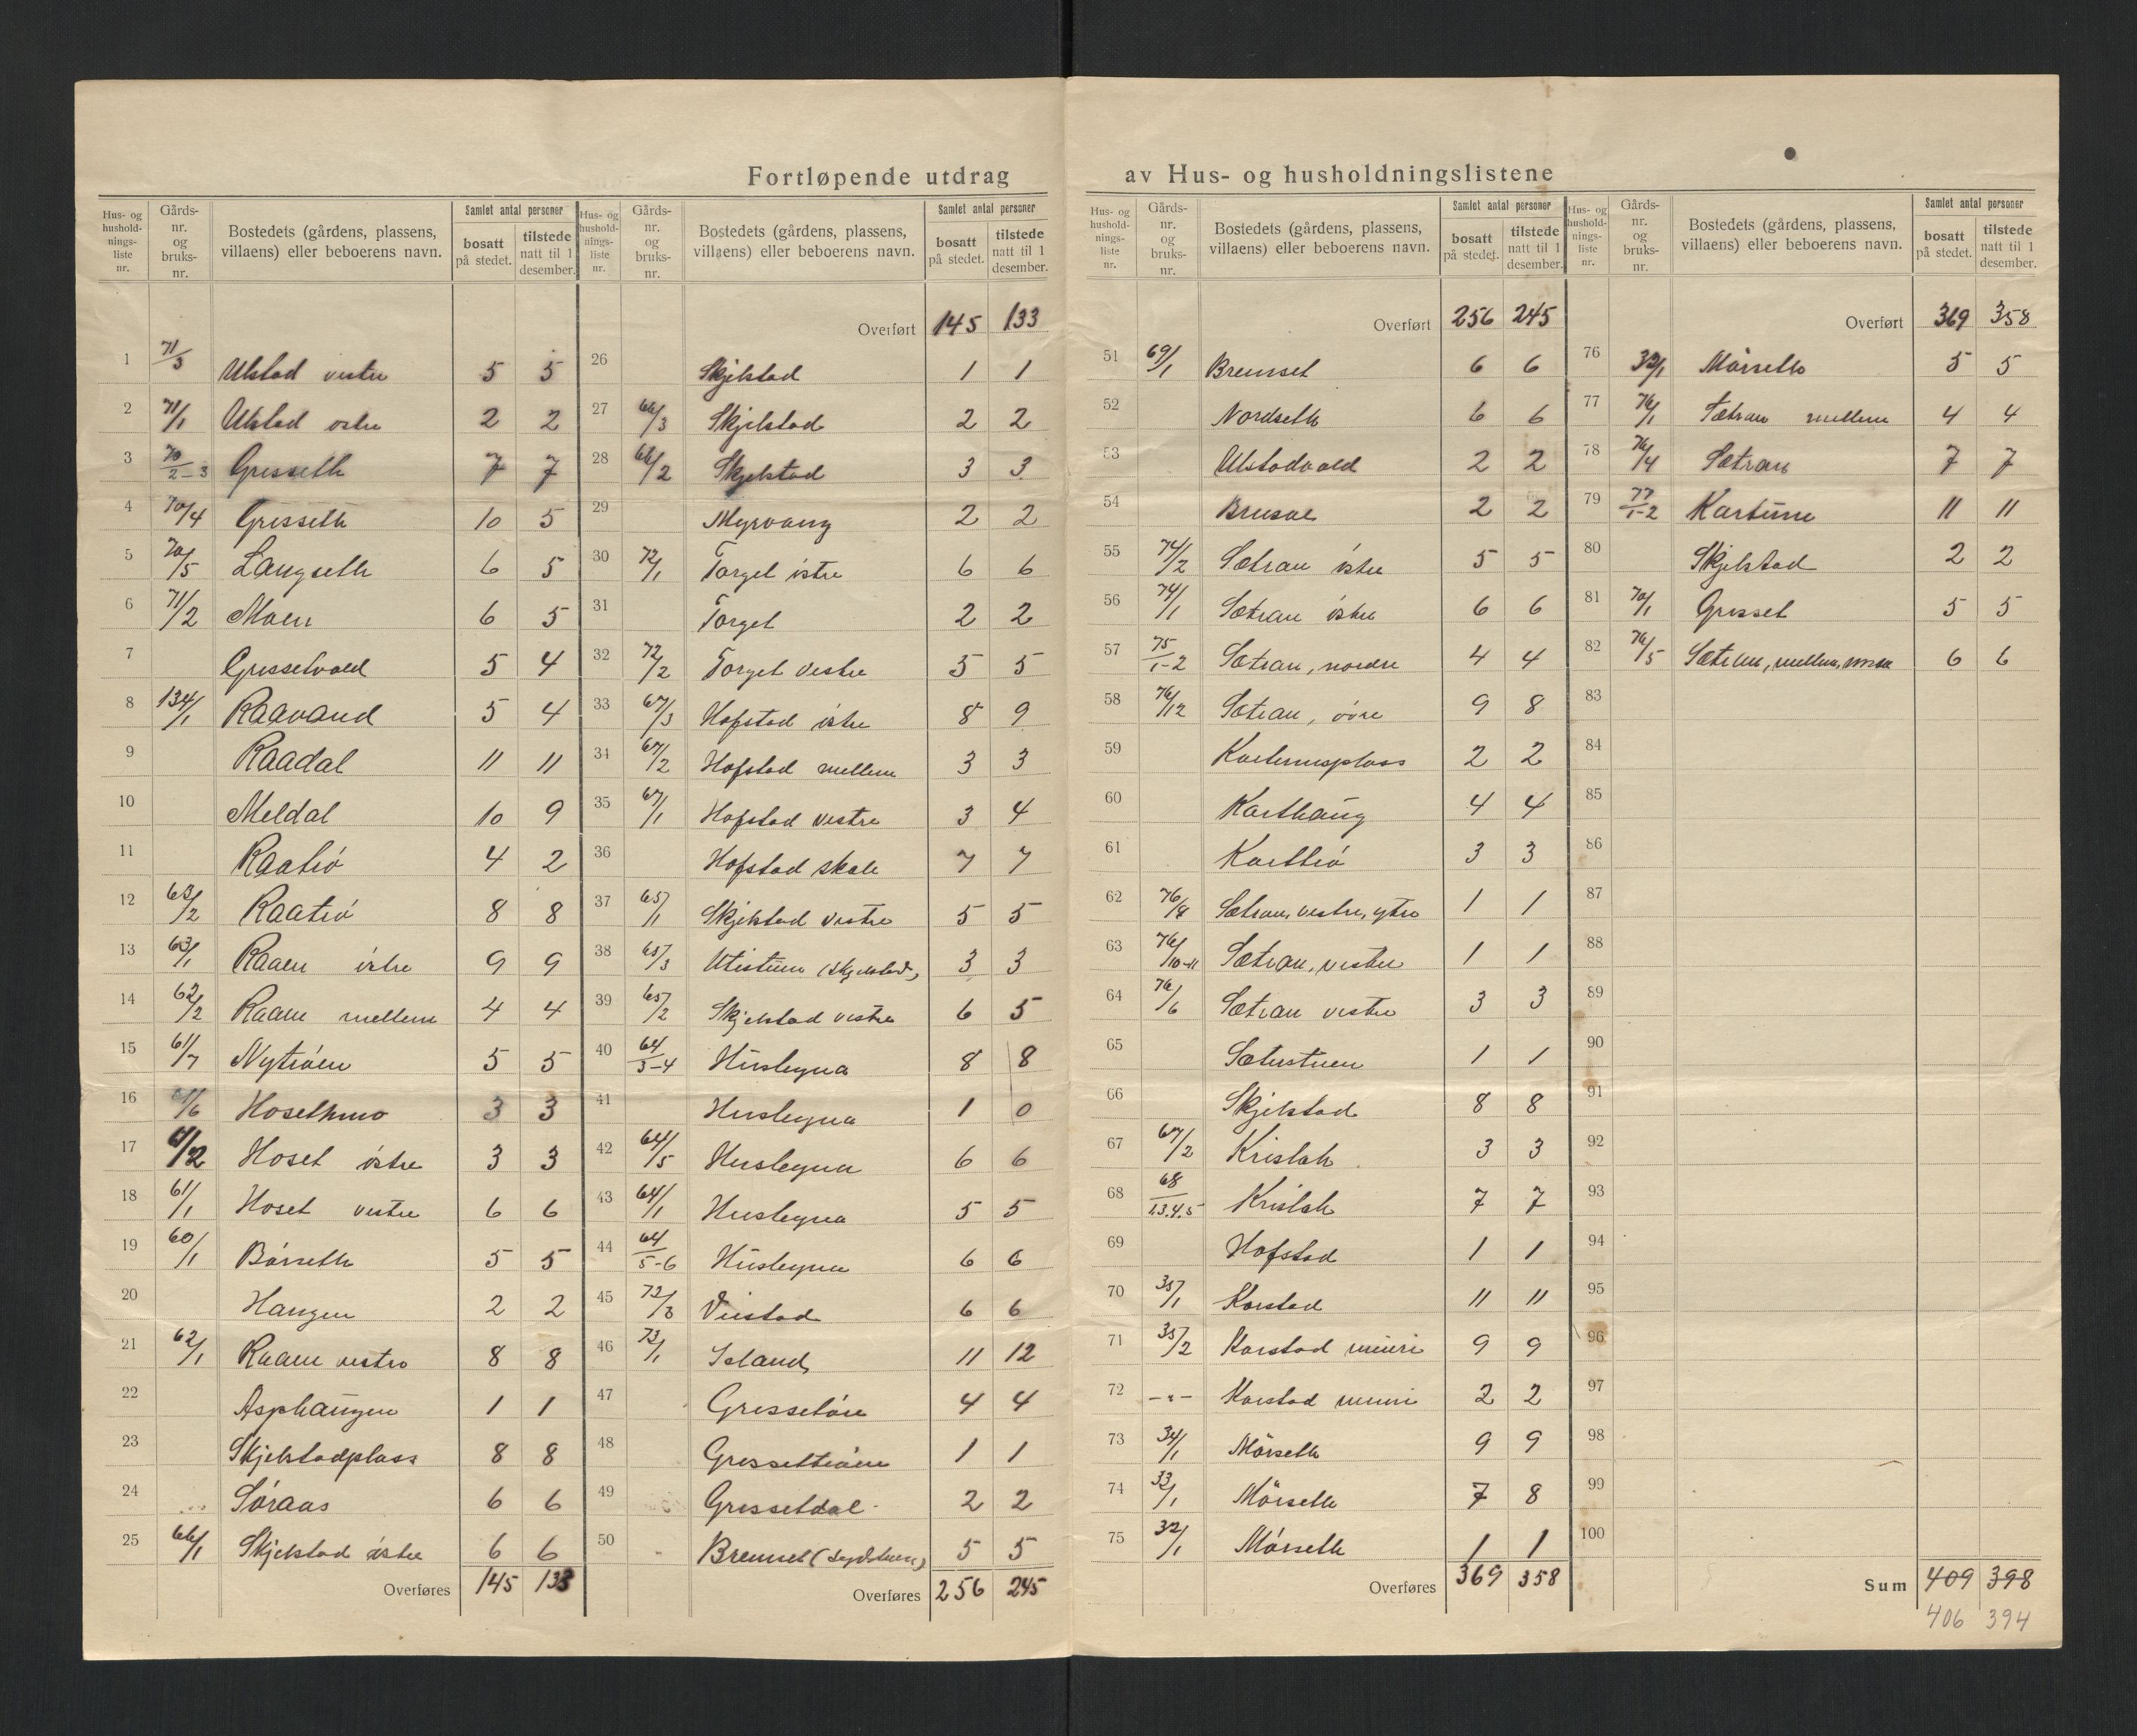 Fortløpende utdrag av Hus- og husholdningslistene
Hus- og husholdnings-liste nr. Gårds-nr. og bruks-nr. Bostedets (gårdens, plassens, villaens) eller beboerens navn. Samlet antal personer bosatt på stedet. tilstede natt til 1 desember.
1 71/3 Ulstad vestre 5 5
2 71/1 Ulstad østre 2 2
3 70/2-3 Gresseth 7 7
4 70/4 Gresseth 10 5
5 70/5 Langseth 6 5
6 71/2 Moen 6 5
7 Gressetvald 5 4
8 134/1 Raavand 5 4
9 Raadal 11 11
10 Meldal 10 9
11 Raatrø 4 2
12 63/2 Raatrø 8 8
13 63/1 Raaen østre 9 9
14 62/2 Raaen mellem 4 4
15 61/7 Nytrøen 5 5
16 61/6 Hosethmo 3 3
17 61/2 Hoset østre 3 3
18 61/1 Hoset vestre 6 6
19 60/1 Børseth 5 5
20 Haugen 2 2
21 62/1 Raaen vestre 8 8
22 Asphaugen 1 1
23 Skjelstadplass 8 8
24 Søraas 6 6
25 66/1 Skjelstad østre 6 6
Overføres 145 133
Hus- og husholdnings-liste nr. Gårds-nr. og bruks-nr. Bostedets (gårdens, plassens, villaens) eller beboerens navn. Samlet antal personer bosatt på stedet. tilstede natt til 1 desember.
Overført 145 133
26 Skjelstad 1 1
27 66/3 Skjelstad 2 2
28 66/2 Skjelstad 3 3
29 Myrvang 2 2
30 72/1 Torget østre 6 6
31 Torget 2 2
32 72/2 Torget vestre 5 5
33 67/3 Hofstad østre 8 9
34 67/2 Hofstad mellem 3 3
35 67/1 Hofstad vestre 3 4
36 Hofstad skole 7 7
37 65/1 Skjelstad vestre 5 5
38 65/3 Utistuen (Skjelstad) 3 3
39 65/2 Skjelstad vestre 6 5
40 64/3-4 Huslegna 8 8
41 Huslegna 1 0
42 64/5 Huslegna 6 6
43 64/1 Huslegna 5 5
44 64/5-6 Huslegna 6 6
45 72/3 Viistad 6 6
46 73/1 Island 11 12
47 Gressetøen 4 4
48 Gressettrøen 1 1
49 Gressetdal 2 2
50 Bremset 5 5
Overføres 256 245
Hus- og husholdnings-liste nr. Gårds-nr. og bruks-nr. Bostedets (gårdens, plassens, villaens) eller beboerens navn. Samlet antal personer bosatt på stedet. tilstede natt til 1 desember.
Overført 256 245
51 69/1 Bremset 6 6
52 Nordseth 6 6
53 Ulstadvald 2 2
54 2 2
55 74/2 Sætran østre 5 5
56 74/1 Sætran østre 6 6
57 75/1-2 Sætran, nordre 4 4
58 76/12 Sætran, øvre 9 8
59 Kartumsplass 2 2
60 Karthaug 4 4
61 Karttrø 3 3
62 76/8 Sætran, vestre, ytre 1 1
63 76/10-11 Sætran, vestre 1 1
64 76/6 Sætran vestre 3 3
65 Sæterstuen 1 1
66 Skjelstad 8 8
67 67/2 Krislok 3 3
68 68/1.3.4.5 Krislok 7 7
69 Hofstad 1 1
70 35/1 Korstad 11 11
71 35/2 Korstad 9 9
72 -"- Korstad 2 2
73 34/1 Mørseth 9 9
74 33/1 Mørseth 7 8
75 32/1 Mørseth 1 1
Overføres 369 358
Hus- og husholdnings-liste nr. Gårds-nr. og bruks-nr. Bostedets (gårdens, plassens, villaens) eller beboerens navn. Samlet antal personer bosatt på stedet. tilstede natt til 1 desember.
Overført 369 358
76 32/1 Mørseth 5 5
77 76/1 Sætran mellem 4 4
78 76/4 Sætran 7 7
79 77/1-2 Kartum 11 11
80 Skjelstad 2 2
81 70/1 Gresset 5 5
82 76/5 Sætran, mellem, 6 6
83
84
85
86
87
88
89
90
91
92
93
94
95
96
97
98
99
100
Sum 409 398
406 394